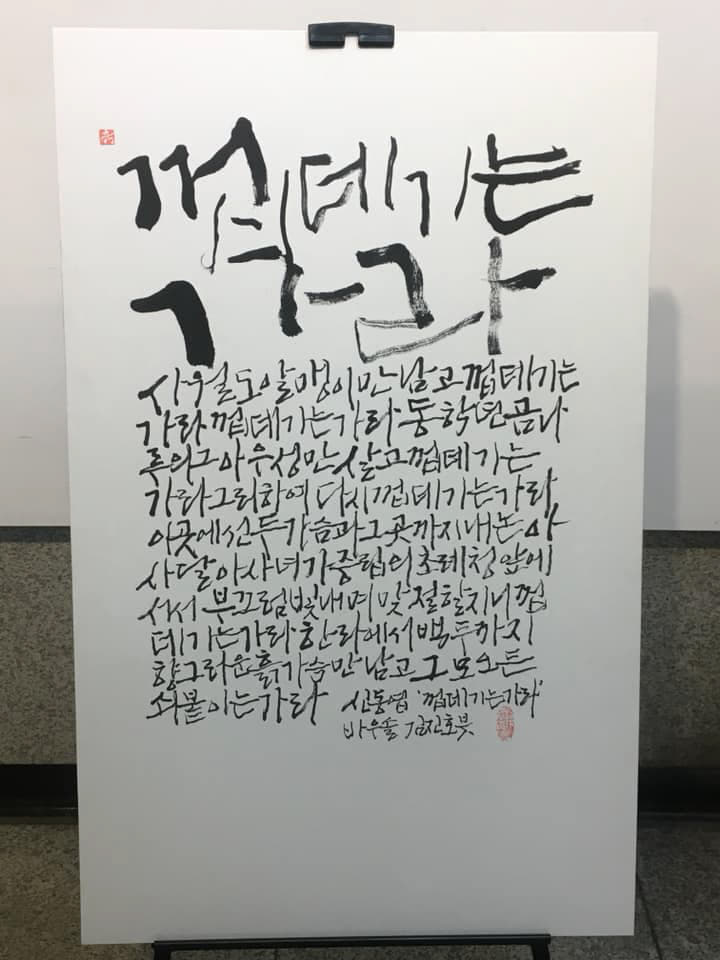 껍데기는
가라
사월도알맹이만남고껍데기는
가라껍데기는가라동학년곰나
루의그아우성만살고껍데기는
가라그리하여다시껍데기는가라
이곳에선두가슴과그곳까지내논아
사달아사녀가중립의초례청앞에
서서부끄럼빛내며맞절할지니껍
데기는가라한라에서백두까지
향그러운흙가슴만남고그모오든
쇠붙이는가라 신동엽 '껍데기는가라'
바우솔 김진호붓